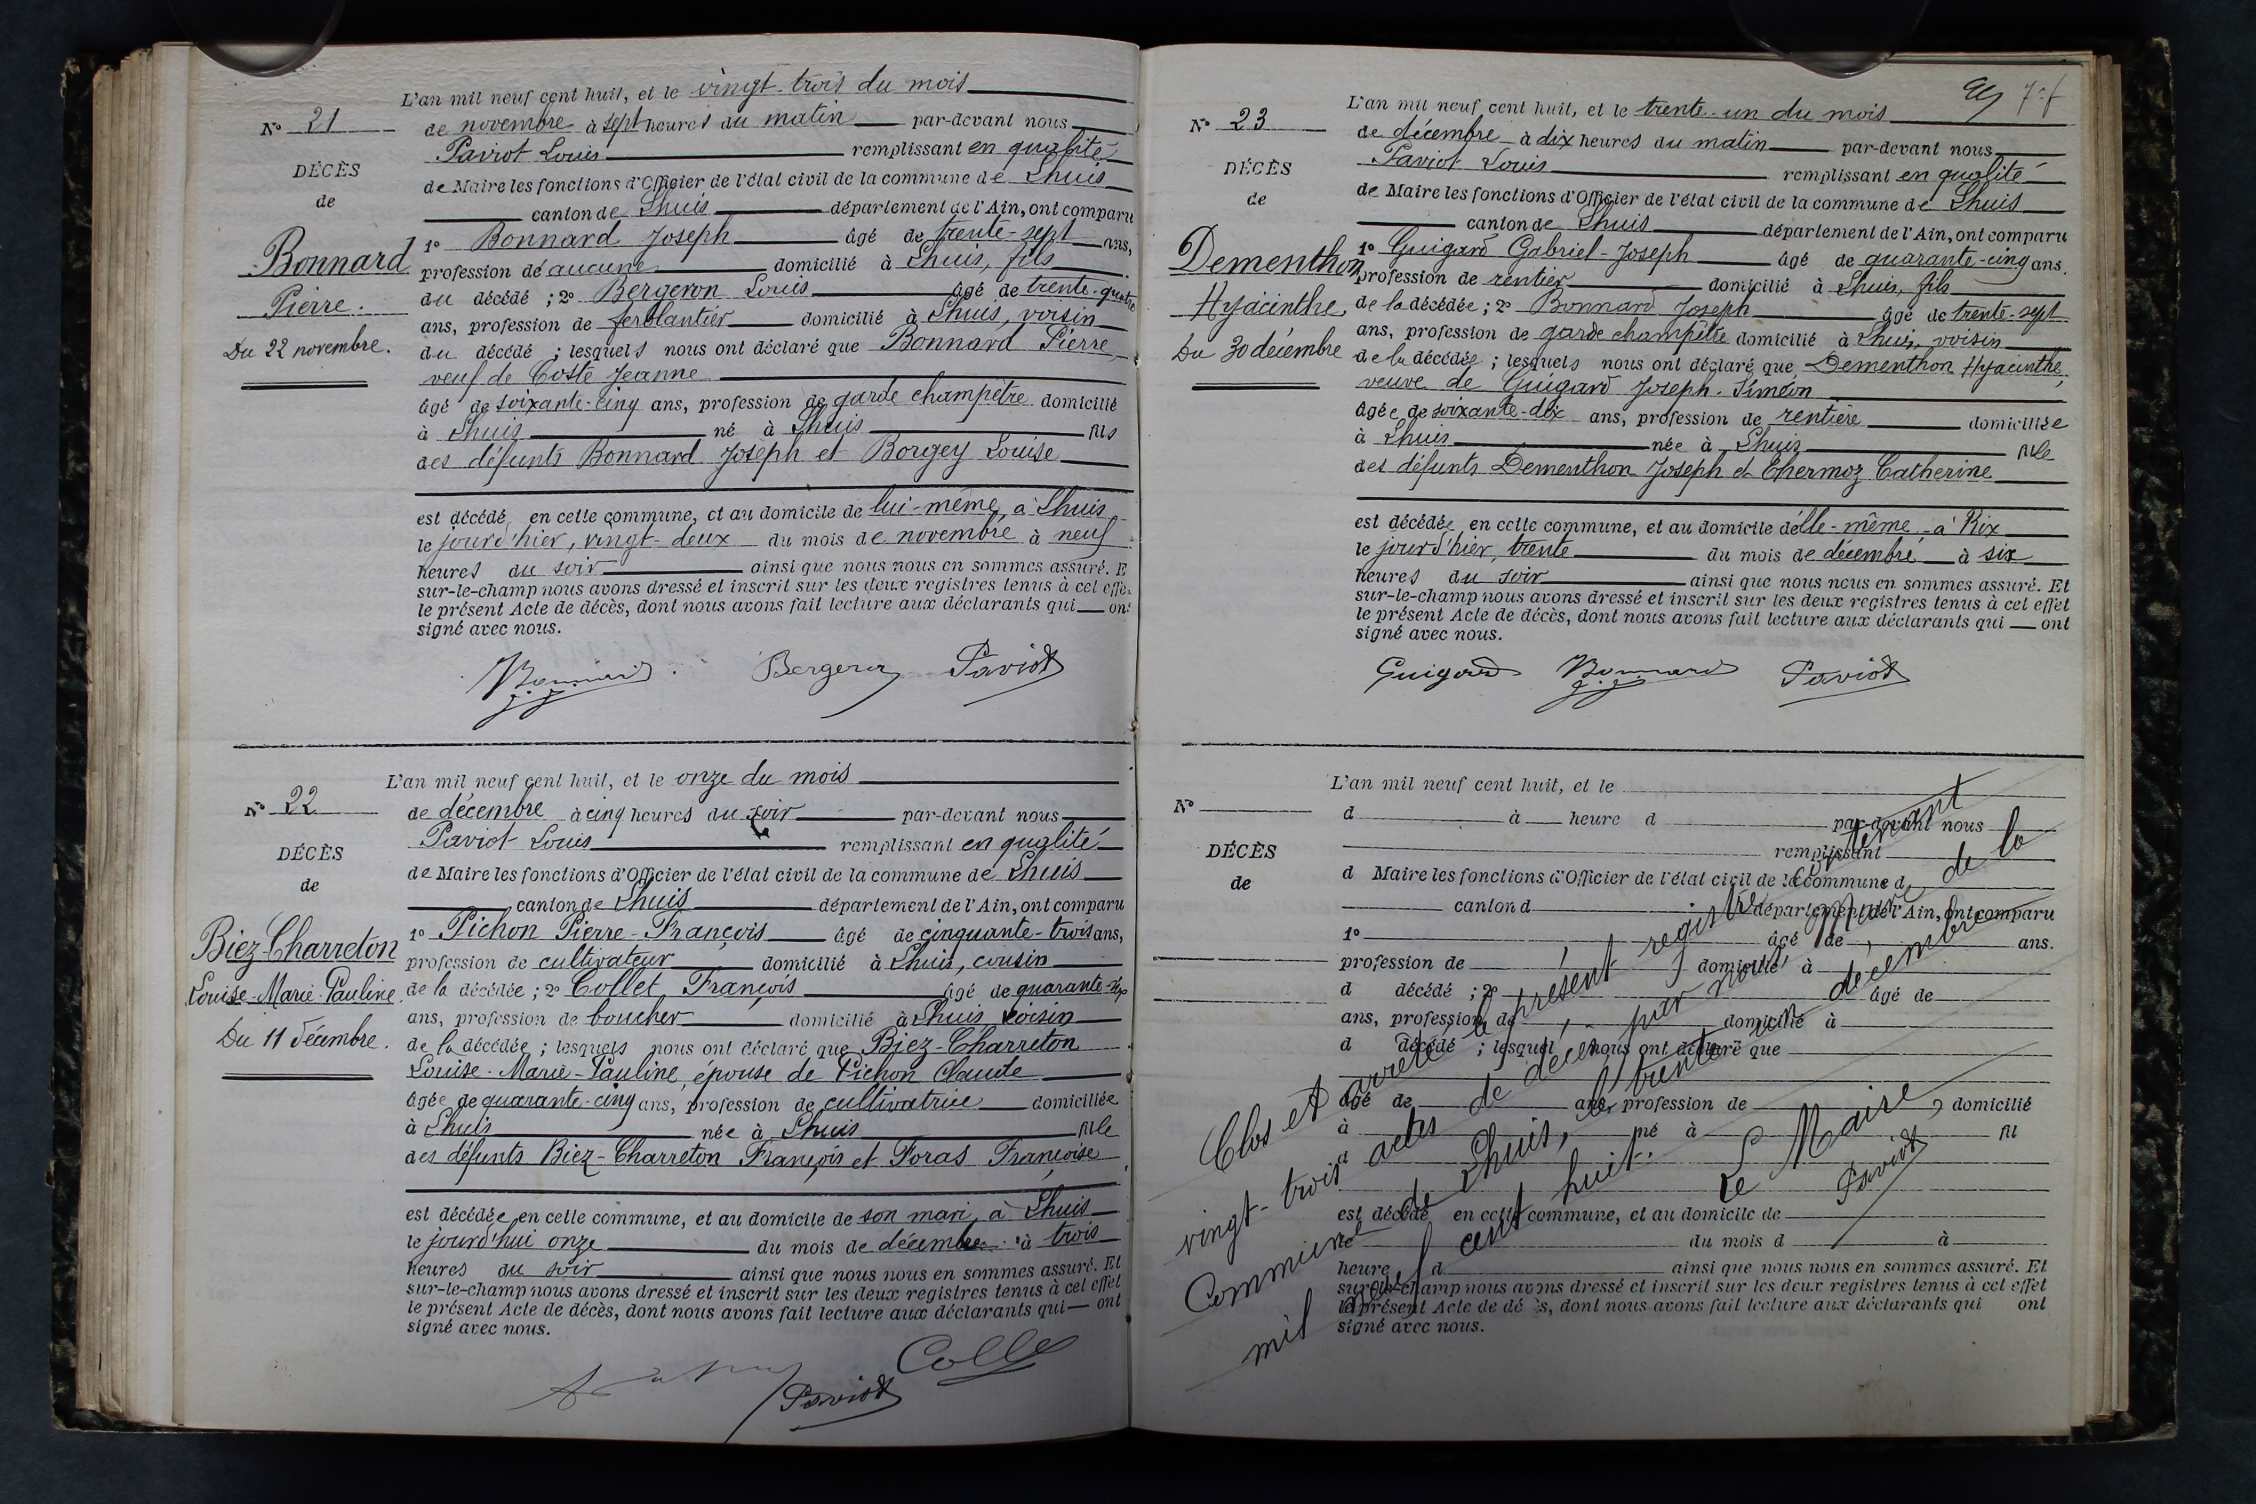 N° 21
DÉCÈS
de
Bonnard
Pierre.
Du 22 novembre.
L'an mil neuf cent huit, et le vingt-trois du mois
de novembre à sept heures du matin par-devant nous
Paviot Louis remplissant en qualité
de Maire les fonctions d'Officier de l'état civil de la commune de Lhuis
canton de Lhuis département de l'Ain, ont comparu
1° Bonnard Joseph âgé de trente-sept ans,
profession de aucune domicilié à Lhuis, fils
du décédé ; 2° Bergeron Louis âgé de trente-quatre
ans, profession de ferblantier domicilié à Lhuis, voisin
du décédé ; lesquels nous ont déclaré que Bonnard Pierre
veuf de Coste Jeanne
âgé de soixante-cinq ans, profession de garde champêtre domicilié
à Lhuis né à Lhuis fils
des défunts Bonnard Joseph et Borgey Louise
est décédé en cette commune, et au domicile de lui-même, à Lhuis
le jour d'hier, vingt-deux du mois de novembre à neuf
heures du soir ainsi que nous nous en sommes assuré. E
sur-le-champ nous avons dressé et inscrit sur les deux registres tenus à cet effe
le présent Acte de décès, dont nous avons fait lecture aux déclarants qui ont
signé avec nous.
Bonnard Bergeron Paviot
J. J.
N° 22
DÉCÈS
de
Biez-Charreton
Louise-Marie-Pauline.
Du 11 décembre.
L'an mil neuf cent huit, et le onze du mois
de décembre à cinq heures du soir par-devant nous
Paviot Louis remplissant en qualité
de Maire les fonctions d'Officier de l'état civil de la commune de Lhuis
canton de Lhuis département de l'Ain, ont comparu
1° Pichon Pierre-François âgé de cinquante-trois ans,
profession de cultivateur domicilié à Lhuis, cousin
de la décédée ; 2° Collet François âgé de quarante-six
ans, profession de boucher domicilié à Lhuis voisin
de la décédée ; lesquels nous ont déclaré que Biez-Charreton
Louise-Marie-Pauline, épouse de Pichon Claude
âgée de quarante-cinq ans, profession de cultivatrice domiciliée
à Lhuis née à Lhuis fille
des défunts Biez-Charreton François et Foras Françoise
est décédée en cette commune, et au domicile de son mari, à Lhuis
le jourd'hui onze du mois de décembre à trois
heures du soir ainsi que nous nous en sommes assuré. Et
sur-le-champ nous avons dressé et inscrit sur les deux registres tenus à cet effet
le présent Acte de décès, dont nous avons fait lecture aux déclarants qui ont
signé avec nous.
Collet
Paviot
N° 23
DÉCÈS
de
Dementhon
Hyacinthe,
Du 30 décembre
L'an mil neuf cent huit, et le trente-un du mois
de décembre à dix heures du matin par-devant nous
Paviot Louis remplissant en qualité
de Maire les fonctions d'Officier de l'état civil de la commune de Lhuis
canton de Lhuis département de l'Ain, ont comparu
1° Guigard Gabriel-Joseph âgé de quarante-cinq ans.
profession de rentier domicilié à Lhuis, fils
de la décédée ; 2° Bonnard Joseph âgé de trente-sept
ans, profession de garde champêtre domicilié à Lhuis, voisin
de la décédée ; lesquels nous ont déclaré que Dementhon Hyacinthe,
veuve de Guigard Joseph-Siméon
âgée de soixante-dix ans, profession de rentière domiciliée
à Lhuis née à Lhuis fille
des défunts Dementhon Joseph et Chermoz Catherine
est décédée en cette commune, et au domicile d'elle-même à Rix
le jour d'hier, trente du mois de décembre à six
heures du soir ainsi que nous nous en sommes assuré. Et
sur-le-champ nous avons dressé et inscrit sur les deux registres tenus à cet effet
le présent Acte de décès, dont nous avons fait lecture aux déclarants qui ont
signé avec nous.
Guigard Bonnard Paviot
J. J.
N°
DÉCÈS
de
L'an mil neuf cent huit, et le
d à heure d par-devant nous
remplissant
d Maire les fonctions d'Officier de l'état civil de la commune d
canton d département de l'Ain, ont comparu
1° âgé de ans.
profession de domicilié à
d décédé ; 2° âgé de
ans, profession de domicilié à
d décédé ; lesquel nous ont déclaré que
âgé de ans, profession de domicilié
à né à fil
d
est décédé en cette commune, et au domicile de
le du mois d à
heure d ainsi que nous nous en sommes assuré. Et
sur-le-champ nous avons dressé et inscrit sur les deux registres tenus à cet effet
le présent Acte de décès, dont nous avons fait lecture aux déclarants qui ont
signé avec nous.
Clos et arrêté le présent registre contenant
vingt-trois actes de décès, par nous, Maire de la
Commune de Lhuis, le trente un décembre
mil neuf cent huit.
Le Maire,
Paviot